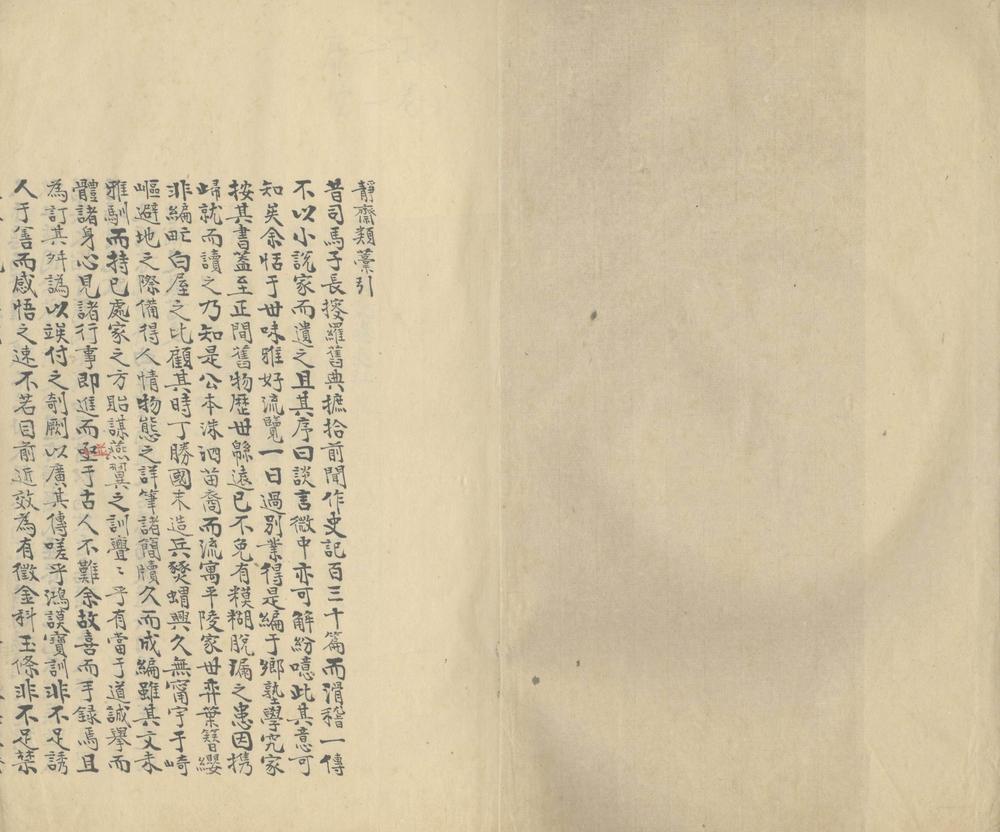 靜齋類藁引
昔司馬子長搜羅舊典摭拾前聞作史記百三十篇而滑稽一傳
不以小說家而遺之且其序曰談言微中亦可解紛噫此其意可
知矣余恬于世味雅好流覽一日過別業得是編于鄉塾學究家
按其書蓋至正間舊物歷世緜遠已不免有糢糊脫漏之患因携
歸就而讀之乃知是公本洙泗苗裔而流寓平陵家世弈葉簪纓
非編甿白屋之比顧其時丁勝國末造兵燹蝟興久無甯宇于崎
嶇避地之際備得人情物態之詳筆諸簡牘久而成編雖其文未
雅馴而持己處家之方貽謀燕翼之訓亹〻乎有當于道誠舉而
體諸身心見諸行事即進而亟于古人不難余故喜而手錄焉且
為訂其舛譌以竢付之剞劂以廣其傳嗟乎鴻謨寶訓非不足誘
人于善而感悟之速不若目前近效為有徵金科玉條非不足禁